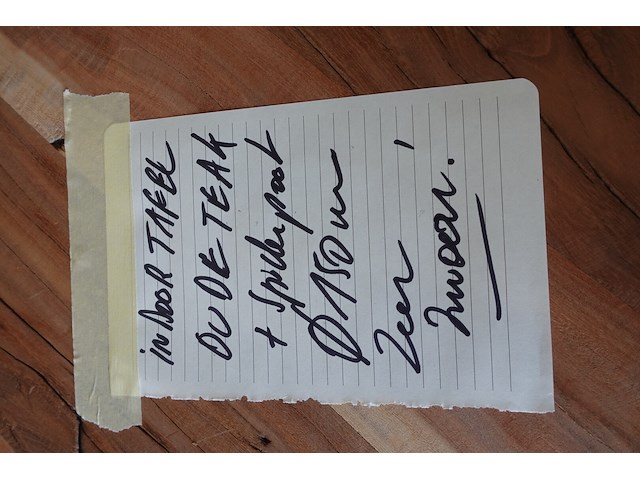 INDOOR TAFEL
OUDE TEAK
+ Spiderpoot
Ø 150 cm
Zeer
zwaar!